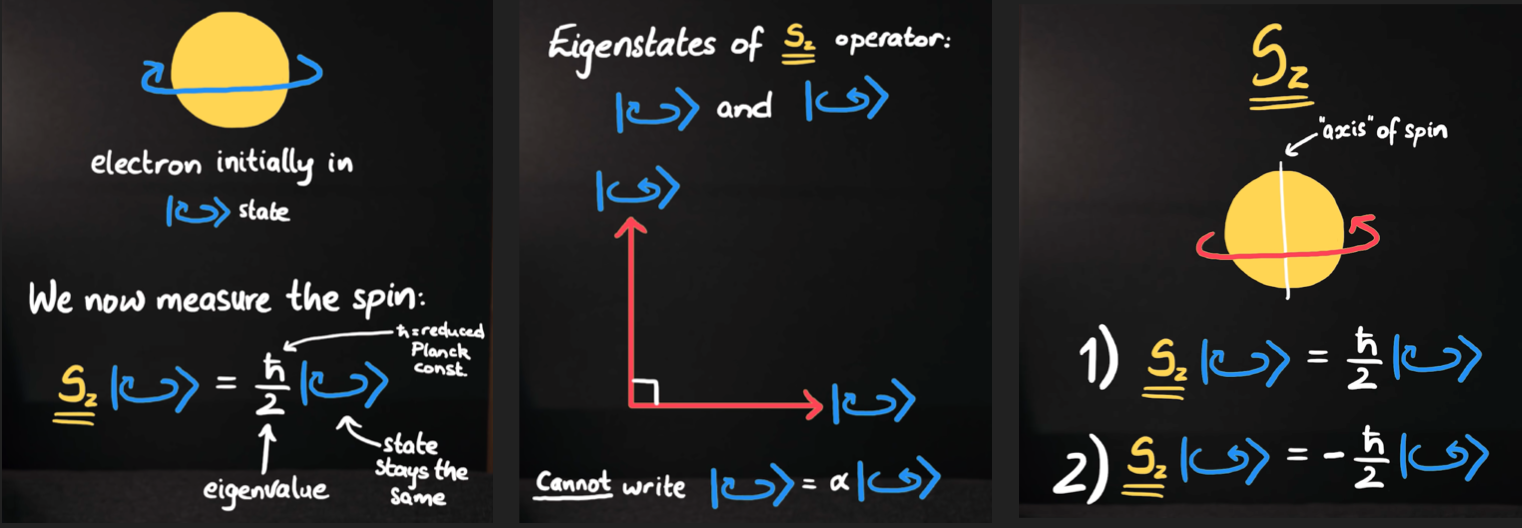 electron initially in
|↻⟩ state
We now measure the spin:
ħ = reduced
Planck
const.
S_z |↻⟩ = ħ/2 |↻⟩
eigenvalue
state
stays the
same
Eigenstates of S_z operator:
|↻⟩ and |↺⟩
|↺⟩
|↻⟩
Cannot write |↻⟩ = α|↺⟩
S_z
"axis" of spin
1) S_z |↻⟩ = ħ/2 |↻⟩
2) S_z |↺⟩ = -ħ/2 |↺⟩